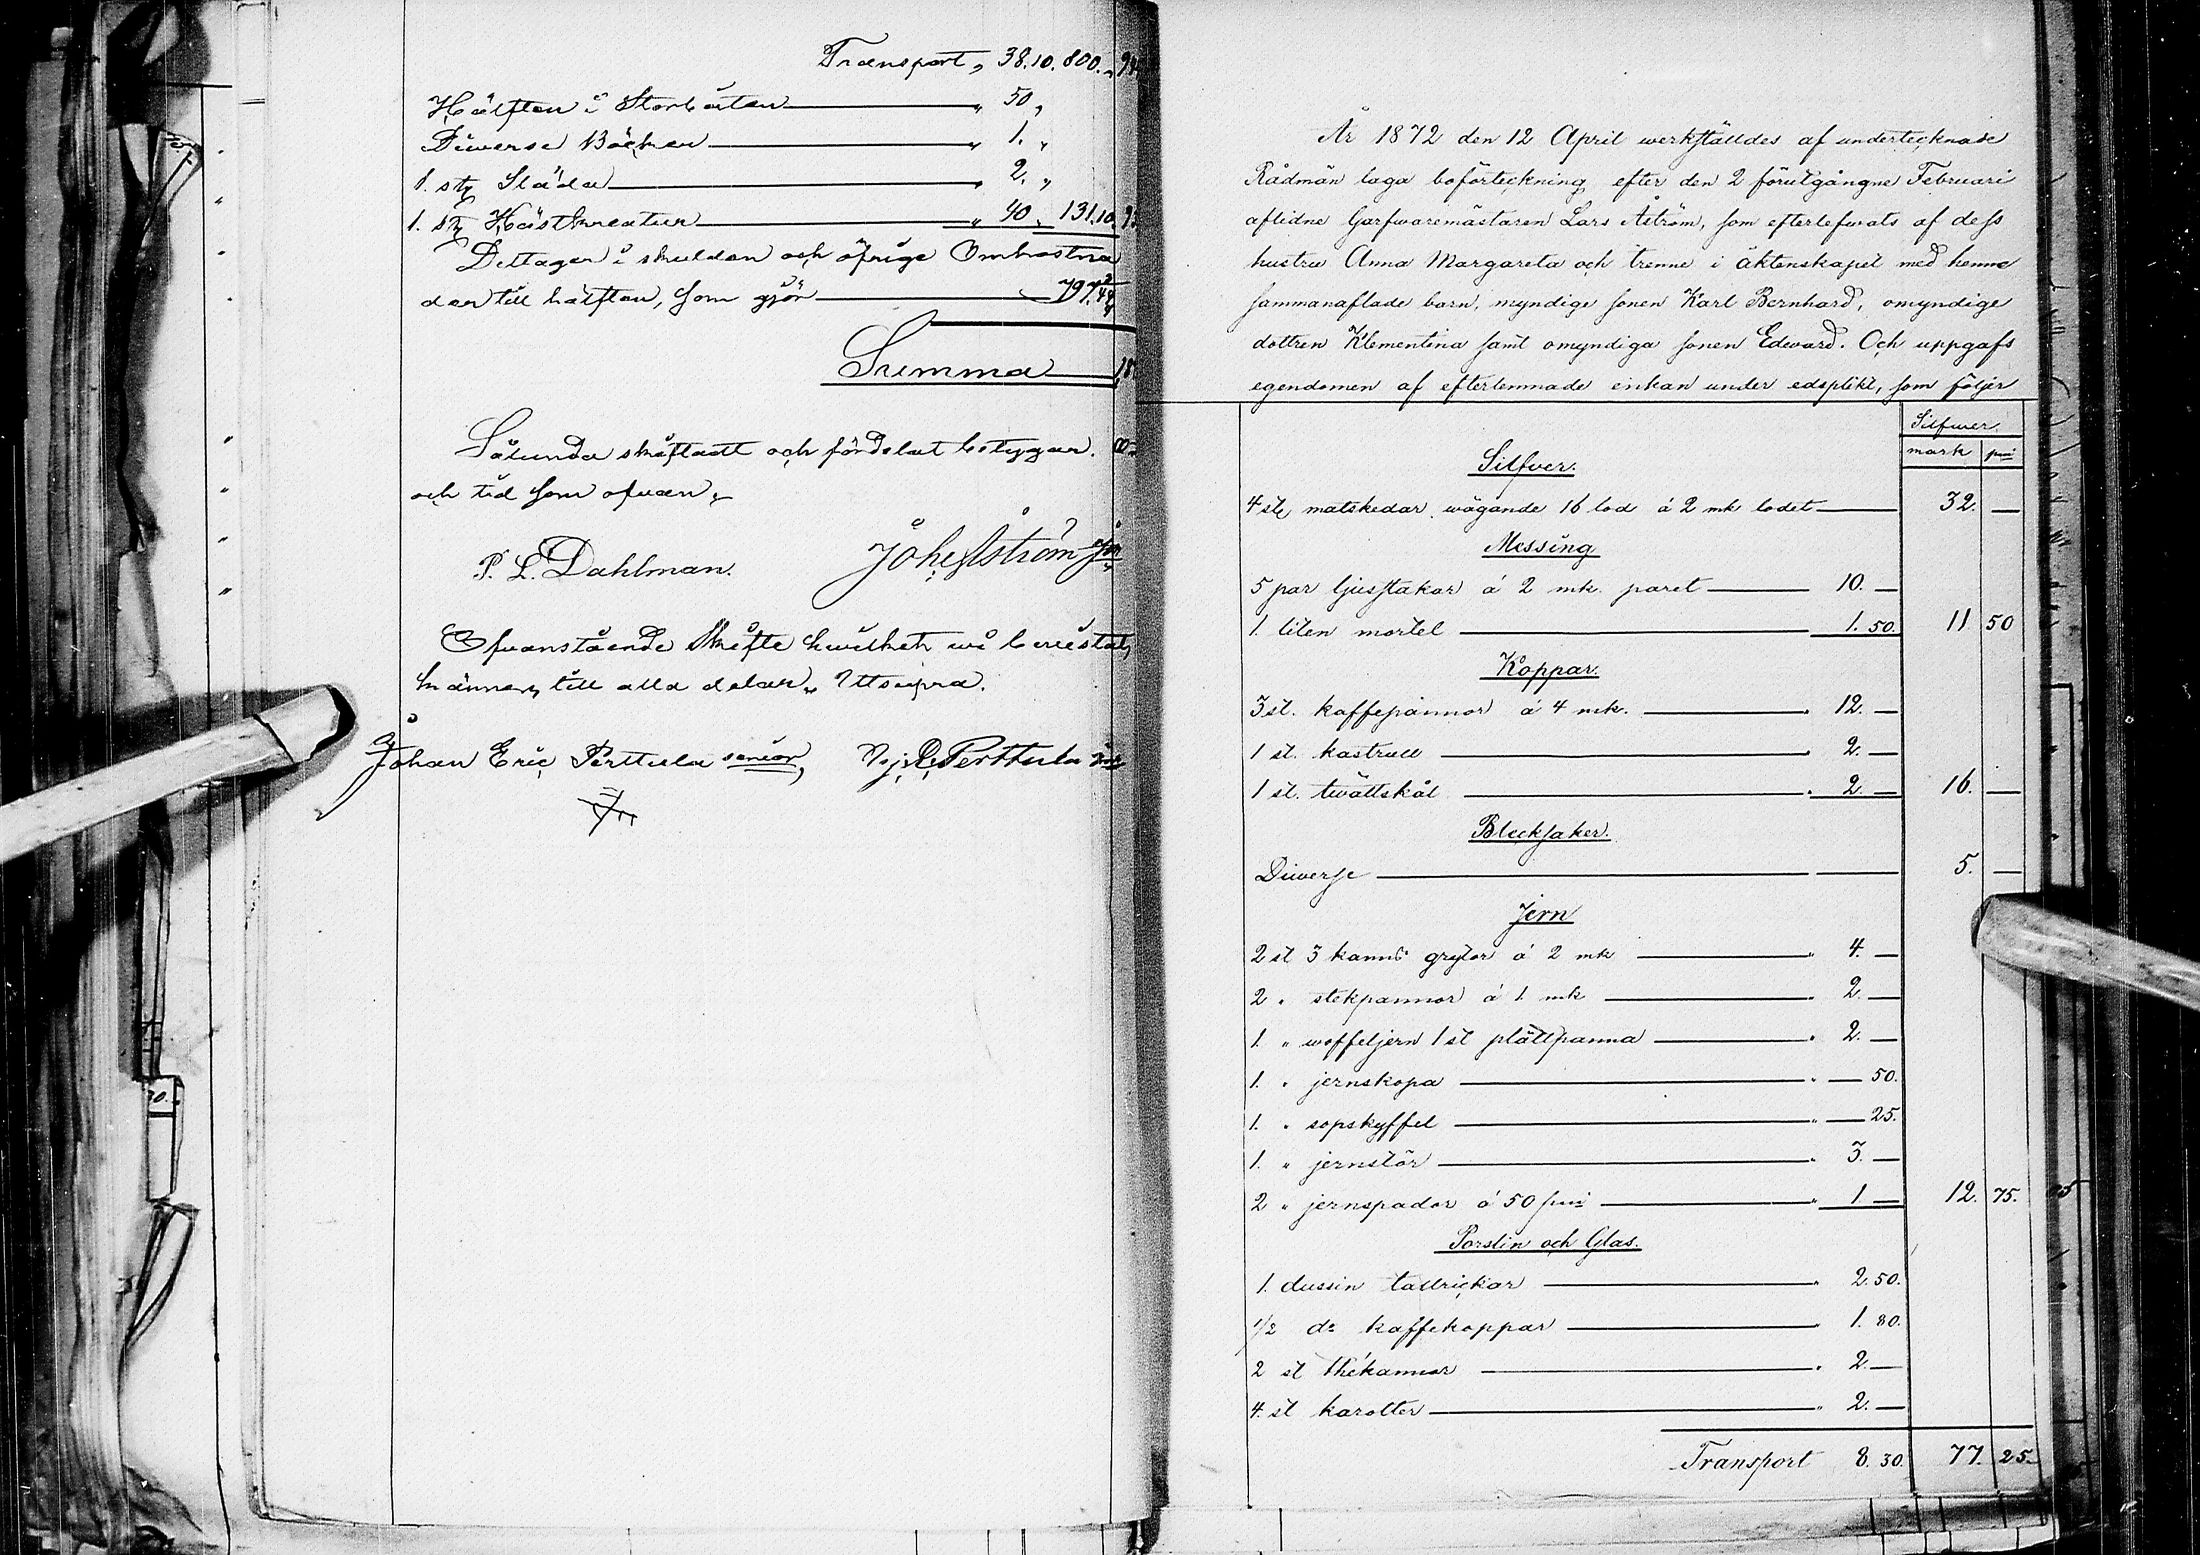 Transport „ 38.10. 800. „
Hälften i Storbåten „ 50 „
Diverse Böcker „ 1. „
1. stg Släda „ 2. „
1. stg Hästkreatur „ 40 „ 131.10.
Deltager i skulden och öfrige Omkostna
der till hälften, som gjör
Summa
Sålunda skiftadt och fördelat betygar.
och tid som ofvan.
P. L. Dahlman.
Ofvanstående Skifte hvilket wi bevistat,
känner till alla delar. Utsupra.
Johan Eric Perttula senior, Perttula
År 1872 den 12 April werkställdes af undertecknade
Rådmän laga boförteckning efter den 2 förutgångne Februari
aflidne Garfwaremästaren Lars Åström, som efterlefwats af dess
hustru Anna Margareta och trenne i äktenskapet med henne
sammanaflade barn, myndige sonen Karl Bernhard, omyndige
dottren Klementina samt omyndiga sonen Edward. Och uppgafs
egendomen af efterlemnade enkan under edsplikt, som följer
Silfwer
mark pni
Silfver.
4 st matskedar wägande 16 lod á 2 mk lodet 32. —
Messing
5 par ljusstakar á 2 mk. paret 10. —
1. liten mortel 1. 50. 11 50
Koppar.
3 st. kaffepannor á 4 mk. 12. —
1 st. kastrull 2. —
1 st. twättskål 2. — 16. —
Blecksaker.
Diverse 5. —
Jern
2 st 3 kanns grytor á 2 mk 4. —
2 „ stekpannor á 1. mk 2. —
1. „ woffeljern 1 st plättpanna 2. —
1. „ jernskopa — 50.
1. „ sopskyffel — 25.
1. „ jernstör 3. —
2 „ jernspador á 50 pni 1 — 12. 75.
Porslin och Glas.
1. dussin tallrickar 2. 50.
1/2 do kaffekoppar 1. 80.
2 st thékannor 2. —
4. st karotter 2. —
Transport 8. 30. 77. 25.